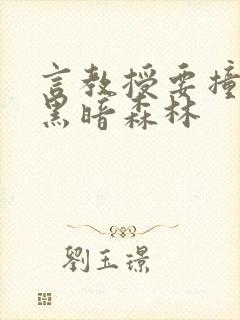 言教授要撞
黑暗森林
劉玉璟